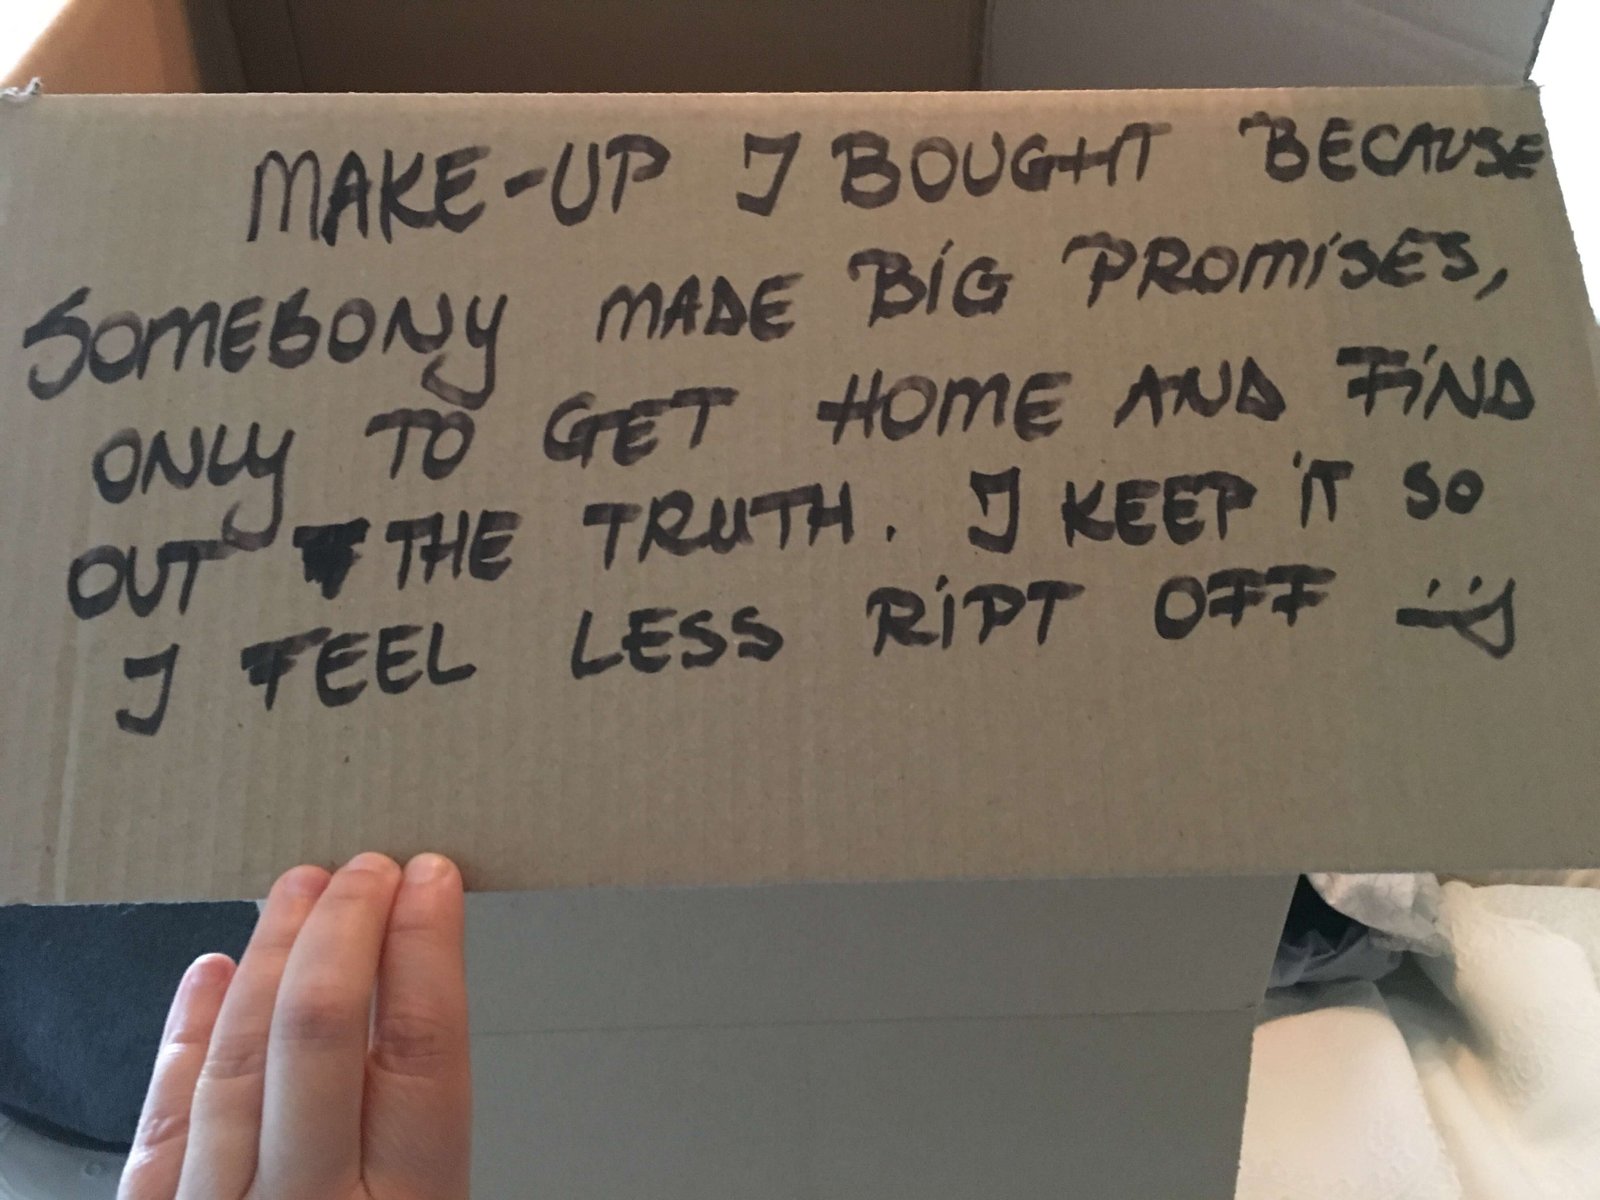 MAKE-UP I BOUGHT BECAUSE
SOMEBONY MADE BIG PROMISES,
ONLY TO GET HOME AND FIND
OUT THE TRUTH. I KEEP IT SO
I FEEL LESS RIPT OFF